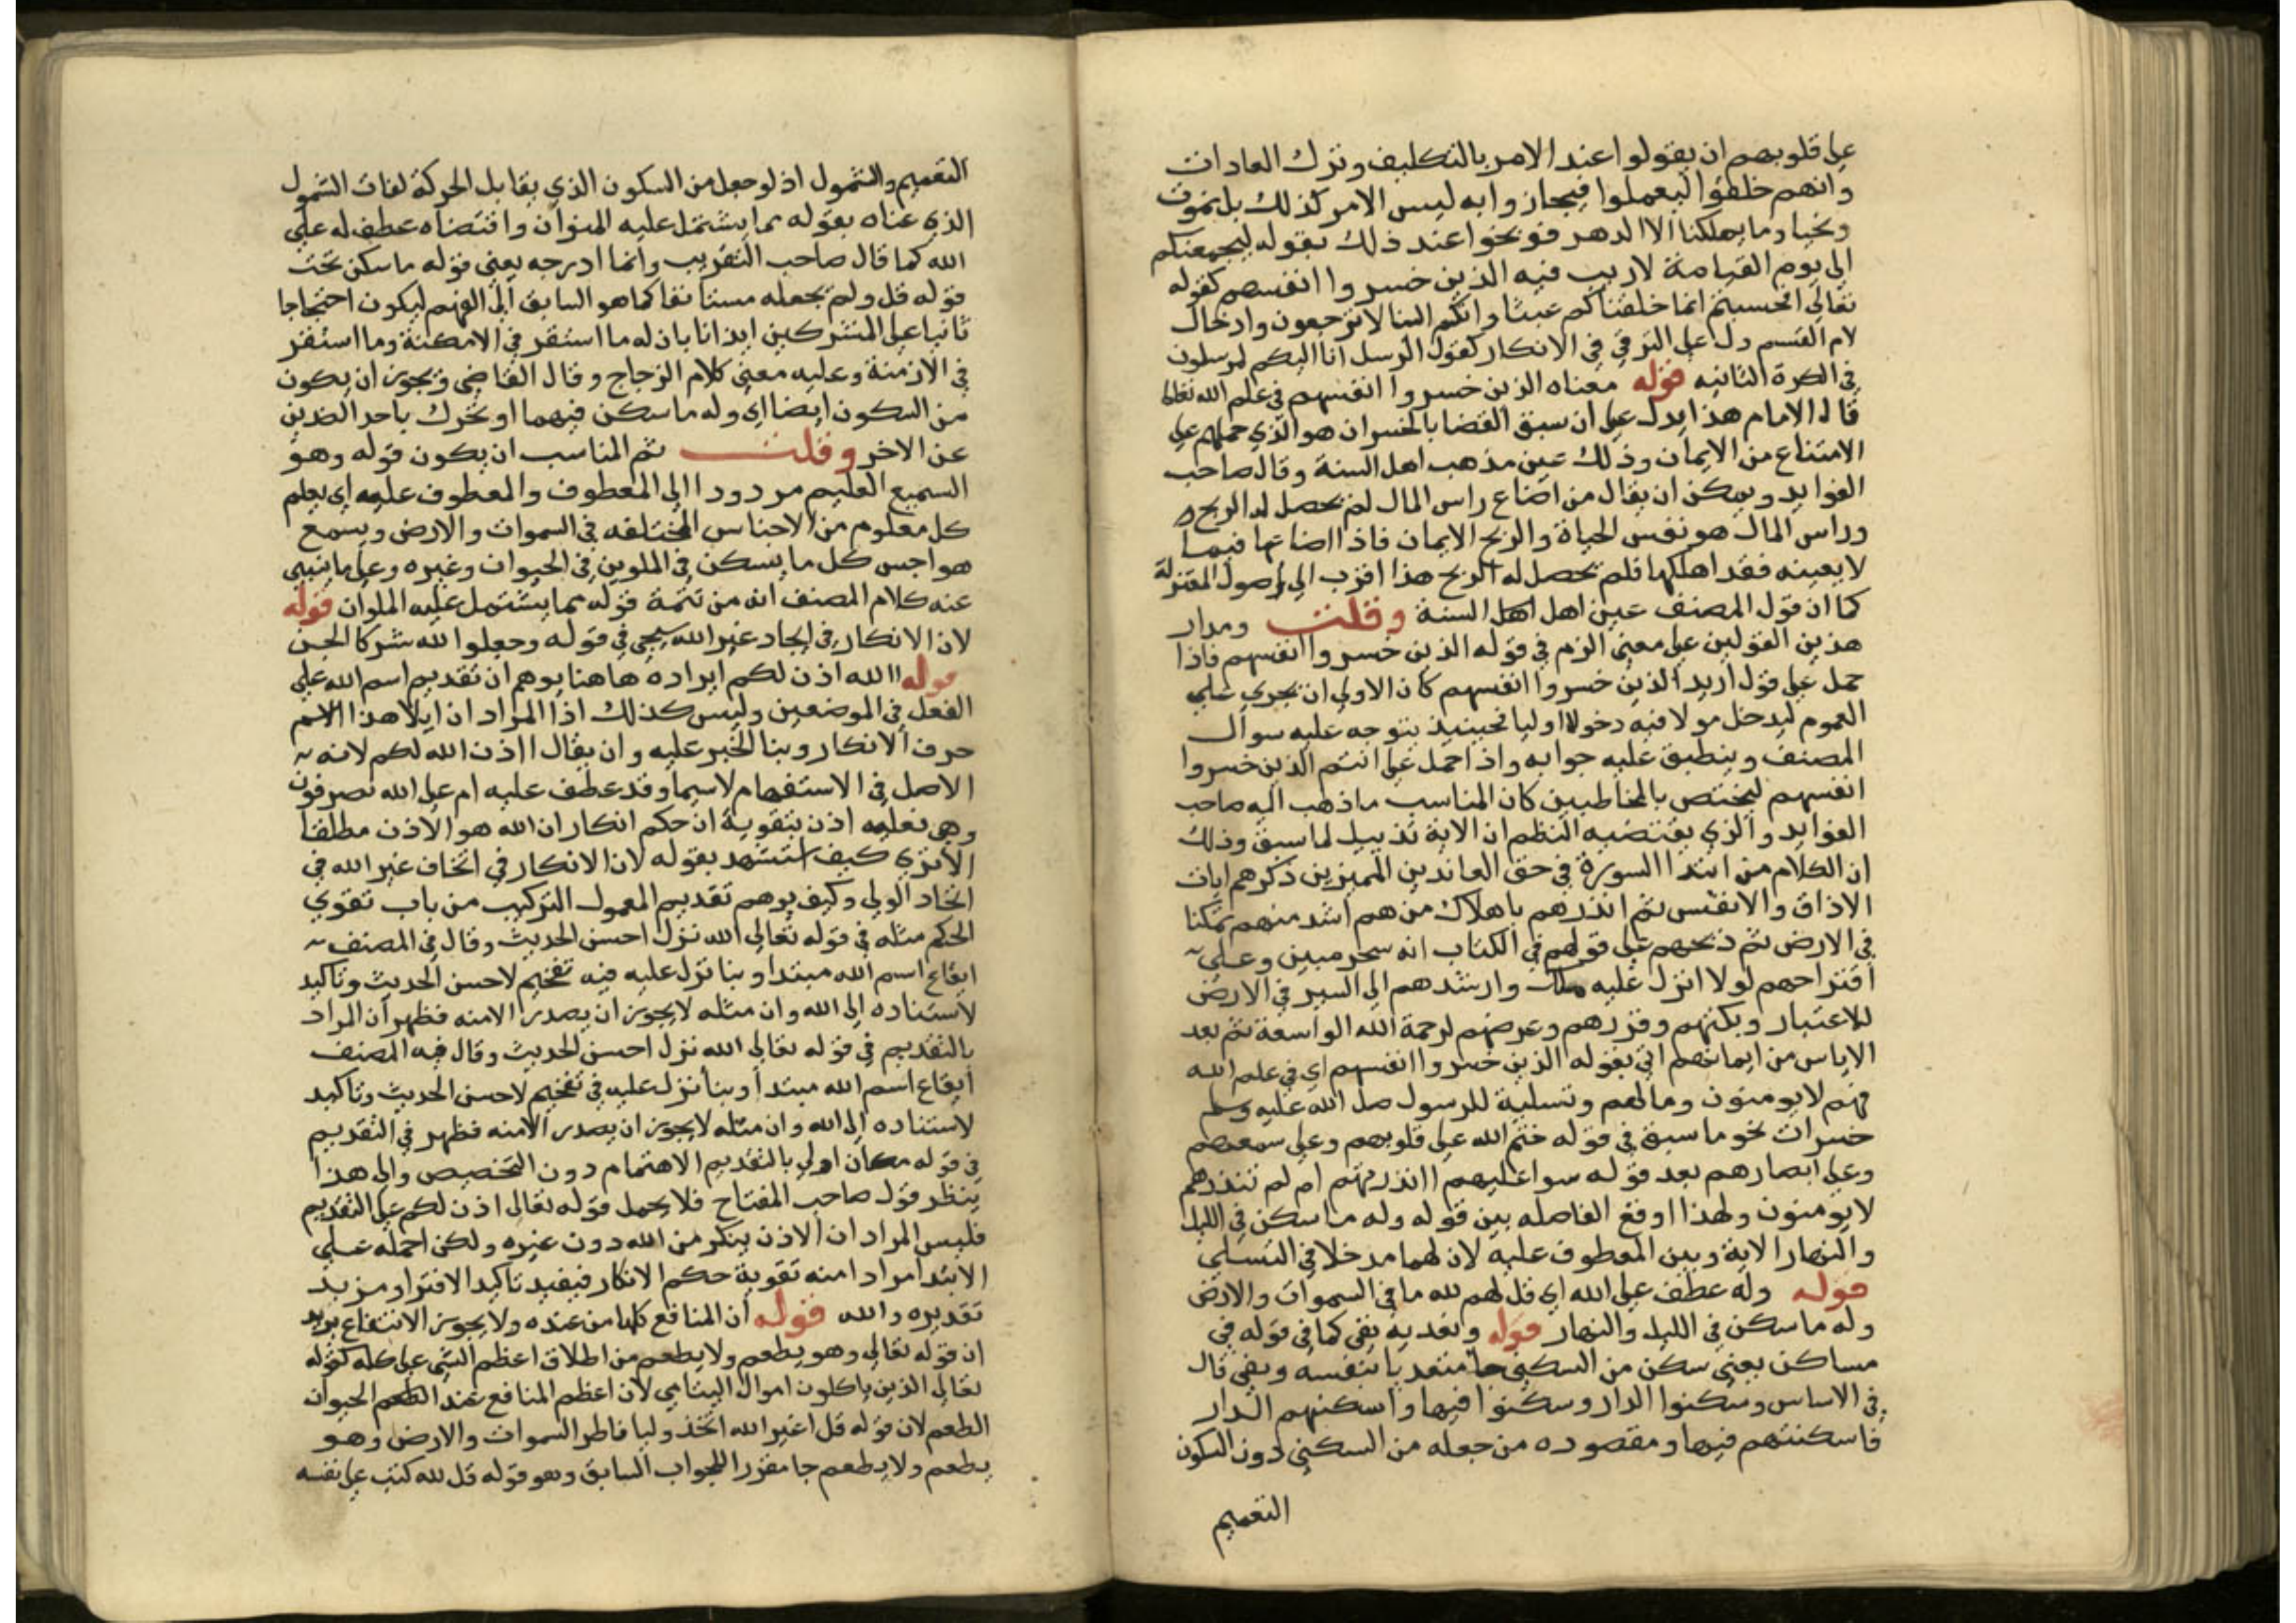 على قلوبهم ان يقولوا عند الامر بالتكليف وترك العادات
وانهم خلقوا ليعملوا فيجازوا به ليس الامر كذلك بل نموت
ونحيا وما يهلكنا الا الدهر فوبخوا عند ذلك بقوله ليجمعنكم
الى يوم القيامة لا ريب فيه الذين خسروا انفسهم كقوله
تعالى افحسبتم انما خلقناكم عبثا وانكم الينا لا ترجعون وادخال
لام القسم دل على الترقي في الانكار كقول الرسل انا اليكم لمرسلون
في الكرة الثانيه قوله معناه الذين خسروا انفسهم في علم الله تعالى
قال الامام هذا يدل على ان سبق القضا بالخسران هو الذي حملهم على
الامتناع من الايمان وذلك عين مذهب اهل السنة وقال صاحب
الفوايد ويمكن ان يقال من اضاع راس المال لم يحصل له الربح
وراس المال هو نفس الحياة والربح الايمان فاذا اضاعها فيما
لا يعينه فقد اهلكها فلم يحصل له الربح هذا اقرب الى اصول المعتزلة
كما ان قول المصنف عين اهل اهل السنة وقلت ومدار
هذين القولين على معنى الزم في قوله الذين خسروا انفسهم فاذا
حمل على قول اريد الذين خسروا انفسهم كان الاولى ان يجري على
العموم ليدخل هولا فيه دخولا اوليا فحينيذ يتوجه عليه سوال
المصنف وينطبق عليه جوابه واذا حمل على انتم الذين خسروا
انفسهم ليختص بالمخاطبين كان المناسب ما ذهب اليه صاحب
الفوايد والذي يقتضيه النظم ان الاية تذييل لما سبق وذلك
ان الكلام من ابتدا السورة في حق المعاندين المميزين ذكرهم ايات
الافاق والانفس ثم انذرهم باهلاك من هم اشد منهم تمكنا
في الارض ثم ذبحهم على قولهم في الكتاب انه سحر مبين وعلى
اقتراحهم لولا انزل عليه ملك وارشدهم الى السير في الارض
للاعتبار وبكتهم وقررهم وعرضهم لرحمة الله الواسعة ثم بعد
الاياس من ايمانهم اتى بقوله الذين خسروا انفسهم اي في علم الله
فهم لا يومنون ومالهم وتسلية للرسول صلى الله عليه وسلم
خسرات نحو ما سبق في قوله ختم الله على قلوبهم وعلى سمعهم
وعلى ابصارهم بعد قوله سوا عليهم اانذرتهم ام لم تنذرهم
لا يومنون ولهذا اوقع الفاصله بين قوله وله ما سكن في الليل
والنهار الاية وبين المعطوف عليه لان لهما مدخلا في التسلي
قوله وله عطف على الله اي قل لهم لله ما في السموات والارض
وله ما سكن في الليل والنهار قوله وتعديه بفي كما في قوله في
مساكن يعني سكن من السكنى جا متعديا بنفسه وبفي قال
في الاساس وسكنوا الدار وسكنوا فيها واسكنهم الدار
فاسكنتهم فيها ومقصوده من جعله من السكنى دون السكون
التعميم
التعميم والشمول اذ لو جعل من السكون الذي يقابل الحركة لفات الشمول
الذي عناه بقوله مما يشتمل عليه الملوان واقتضاه عطف له على
الله كما قال صاحب التقريب وانما ادرجه يعني قوله ما سكن تحت
قوله قل ولم يجعله مستانفا كما هو السابق الى الفهم ليكون احتجاجا
ثانيا على المشركين ايذانا بان له ما استقر في الامكنة وما استقر
في الازمنة وعليه معنى كلام الزجاج وقال القاضي ويجوز ان يكون
من السكون ايضا اي وله ما سكن فيهما او تحرك باحد الضدين
عن الاخر وقلت ثم المناسب ان يكون قوله وهو
السميع العليم مردودا الى المعطوف والمعطوف عليه اي يعلم
كل معلوم من الاجناس المختلفه في السموات والارض ويسمع
هواجس كل ما يسكن في الملوين في الحيوان وغيره وعلى ما ينبى
عنه كلام المصنف انه من تتمة قوله مما يشتمل عليه الملوان قوله
لان الانكار في ايجاد غير الله سيجي في قوله وجعلوا لله شركا الجن
قوله االله اذن لكم ايراده هاهنا يوهم ان تقديم اسم الله على
الفعل في الموضعين وليس كذلك اذ المراد ان ايلا هذا الاسم
حرف الانكار وبنا الخبر عليه وان يقال ااذن الله لكم لانه
الاصل في الاستفهام لاسيما وقد عطف عليه ام على الله تصرفون
وهي فعليه اذن بتقوية ان حكم انكار ان الله هو الاذن مطلقا
الا ترى كيف استشهد بقوله لان الانكار في اتخاف غير الله في
اتخاد الولي وكيف يوهم تقديم المعمول التركيب من باب تقوي
الحكم مثله في قوله تعالى الله نزل احسن الحديث وقال في المصنف
ايقاع اسم الله مبتدا وبنا نزل عليه فيه تفخيم لاحسن الحديث وتاكيد
لاستناده الى الله وان مثله لا يجوز ان يصدر الا منه فظهر ان المراد
بالتقديم في قوله تعالى الله نزل احسن الحديث وقال فيه المصنف
ايقاع اسم الله مبتدا وبنا نزل عليه في تفخيم لاحسن الحديث وتاكيد
لاستناده الى الله وان مثله لا يجوز ان يصدر الا منه فظهر في التقديم
في قوله مكان اولى بالتقديم الاهتمام دون التخصيص والى هذا
ينظر قول صاحب المفتاح فلا يحمل قوله تعالى اذن لكم على التقديم
فليس المراد ان الاذن ينكر من الله دون غيره ولكن احمله على
الابتدا مرادا منه تقوية حكم الانكار فيفيد تاكيد الافترا ومزيد
تقديره والله قوله ان المنافع كلها من عنده ولا يجوز الانتفاع يريد
ان قوله تعالى وهو يطعم ولا يطعم من اطلاق اعظم الشي على كله كقوله
تعالى الذين ياكلون اموال اليتامى لان اعظم المنافع عند الطعم الحيوان
الطعم لان قوله قل اغير الله اتخذ وليا فاطر السموات والارض وهو
يطعم ولا يطعم جا مقررا للجواب السابق وهو قوله قل لله كتب على نفسه